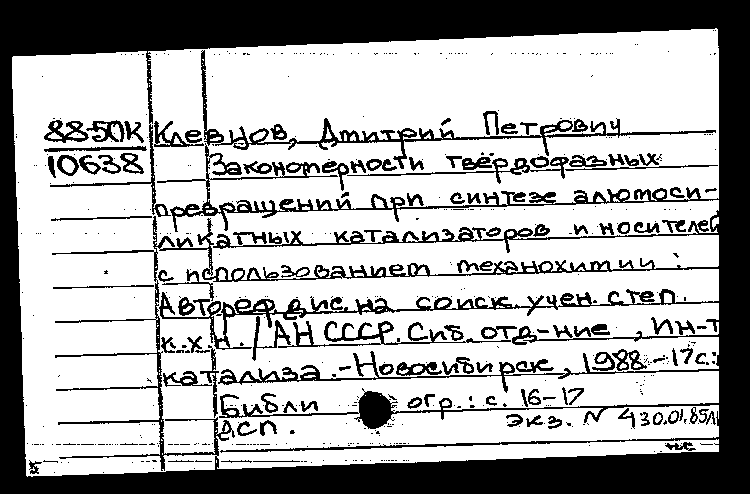 88-50К Клевцов, Дмитрий Петрович
10638 Закономерности твёрдофазных
превращений при синтезе алюмоси-
ликатных катализаторов и носителей
с использованием механохимии :
Автореф. дис. на соиск. учен. степ.
к.х.н. / АН СССР. Сиб. отд-ние , Ин-т
катализа. - Новосибирск, 1988 - 17с.:
Библиогр.: с. 16-17
ДСП. Экз. N